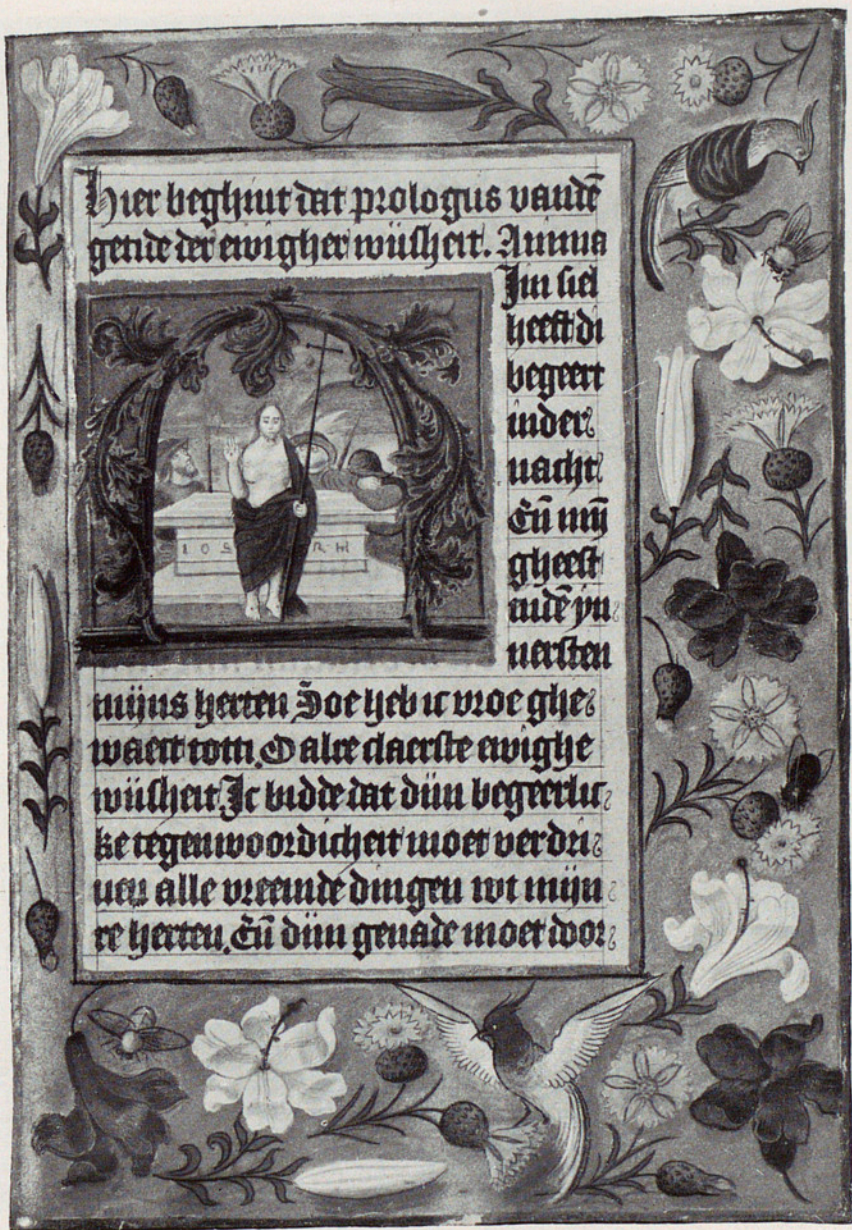 Hier beghint dat prologus vandē
getide der ewigher wiisheit. Anima
Jin siel
heeft di
begeert
inder
nacht
Eñ mijn
gheest
indē yn
nersten
mijns herten Soe heb ic vroe ghe
waect totti. O alre claerste ewighe
wiisheit. Ic bidde dat diin begeerlic
ke tegenwoordicheit moet verdri
uen alle vreemde dingen wt mijn
re herten. Eñ diin genade moet door
IOS RH